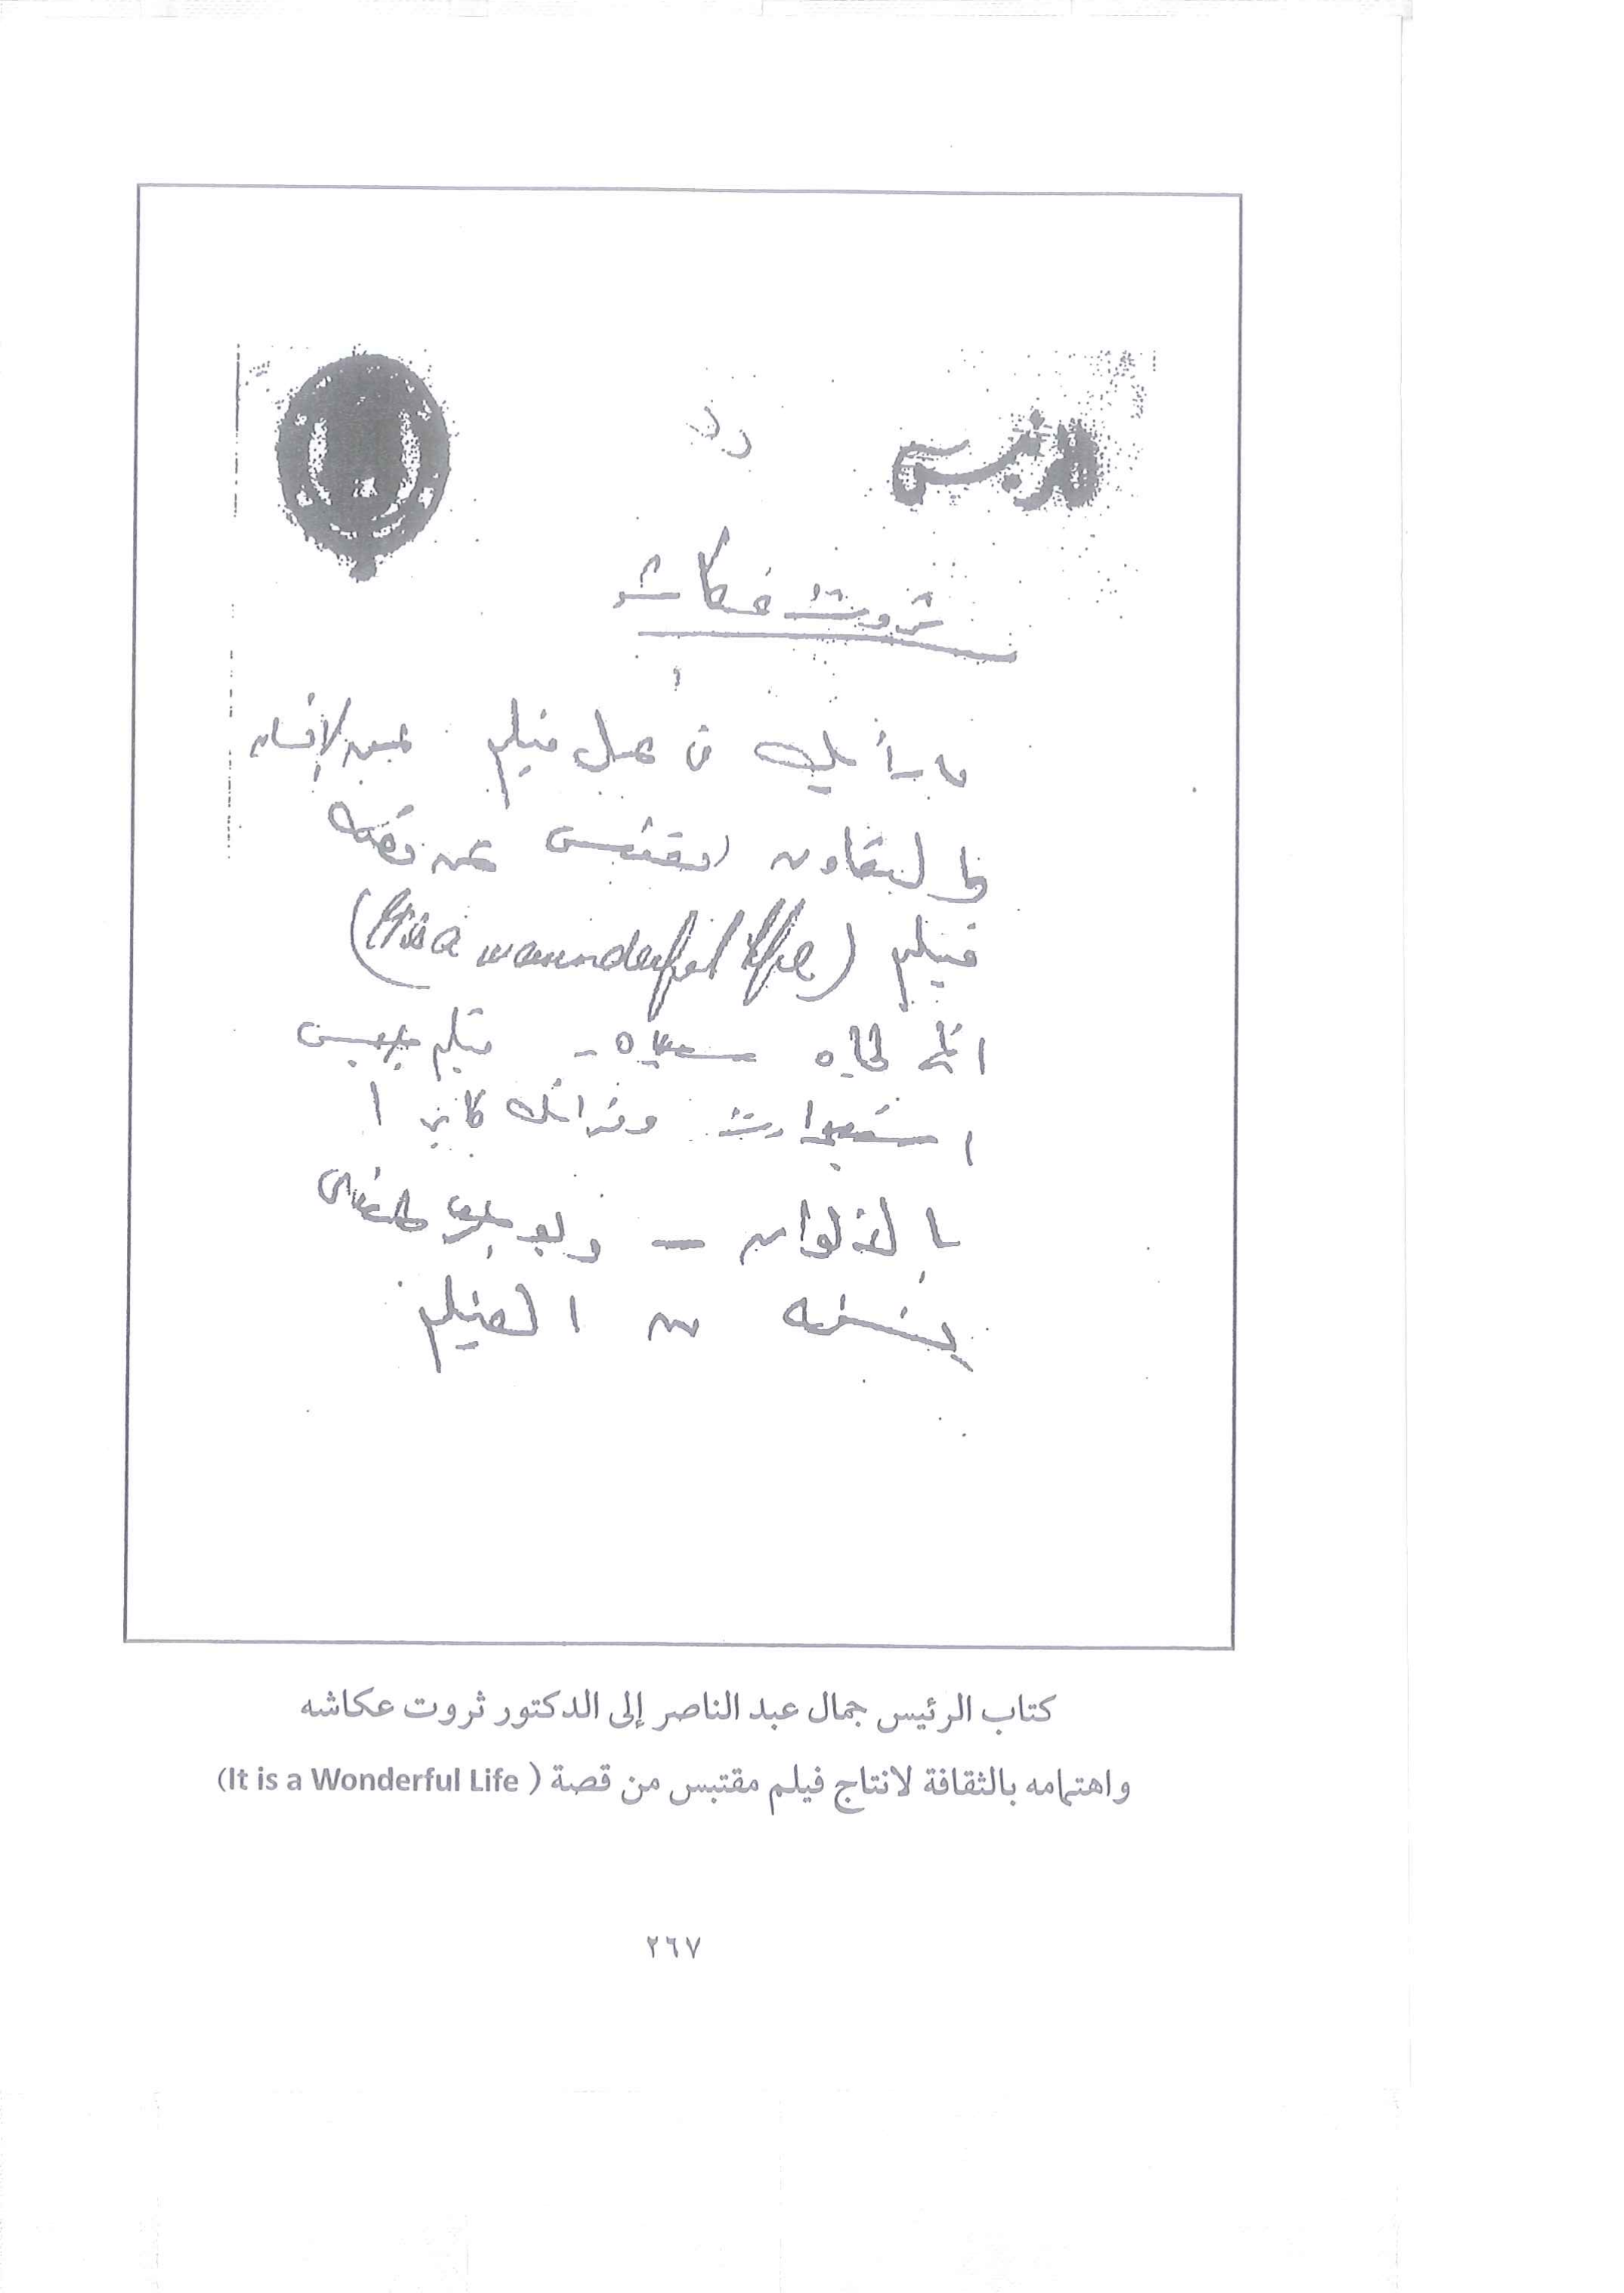 الرئيس
ثروت عكاشه
ما رأيك فى عمل فيلم عن الإنسان
التعاون مقتبس عن قصه
فيلم (It is a wounderful life)
انها لحياه سعيده - فيلم جيمس
استيوارت وفرانك كابرا
بالألوان - ولو
بنسخه من الفيلم
كتاب الرئيس جمال عبد الناصر إلى الدكتور ثروت عكاشه
واهتمامه بالثقافة لانتاج فيلم مقتبس من قصة ( It is a Wonderful Life)
٢٦٧